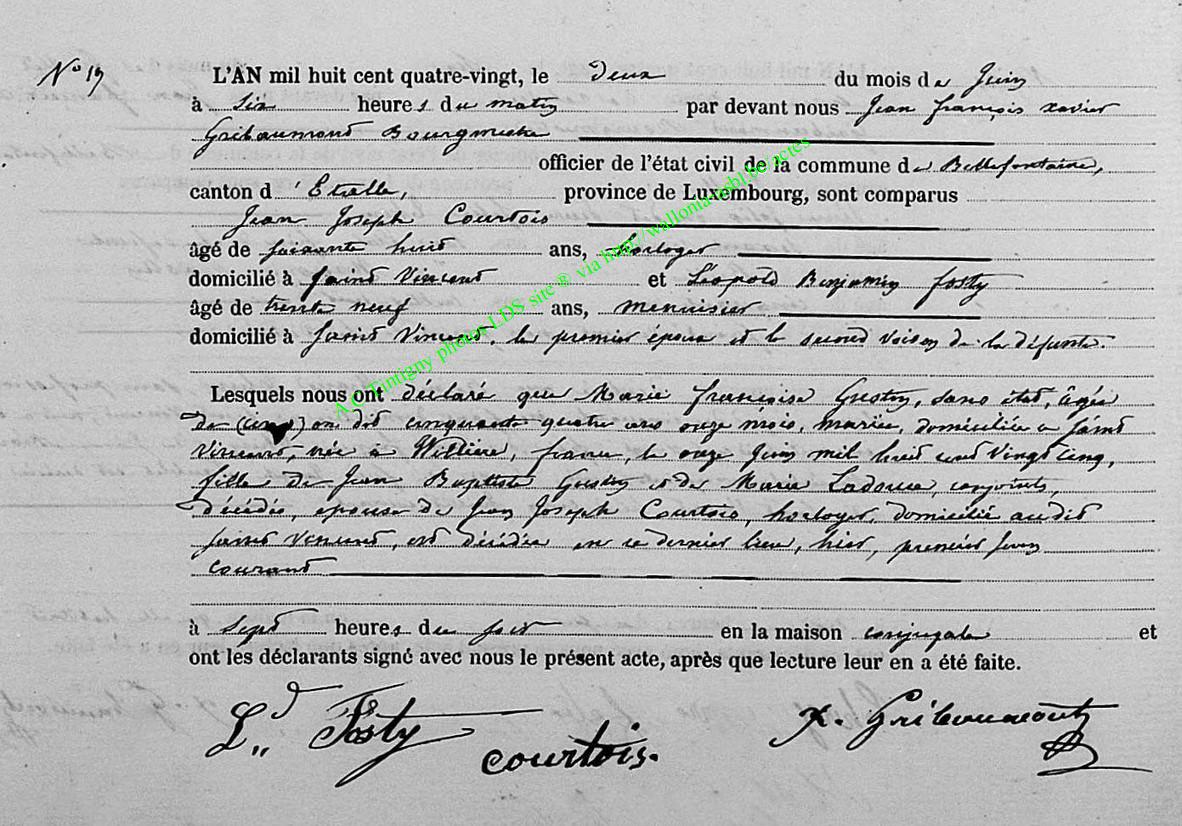 N° 19
L'AN mil huit cent quatre-vingt, le Deux du mois de Juin
à six heures du matin par devant nous Jean françois xavier
Gribaumont Bourgmestre
officier de l'état civil de la commune de Bellefontaine,
canton d'Etalle, province de Luxembourg, sont comparus
Jean Joseph Courtois
âgé de soixante huit ans, horloger
domicilié à Saint Vincent et Léopold Benjamin fosty
âgé de trente neuf ans, menuisier
domicilié à Saint Vincent, le premier époux et le second voisin de la défunte.
Lesquels nous ont déclaré que Marie françoise Gustin, sans état, âgée
de (cinq) on dit cinquante quatre ans onze mois, mariée, domiciliée à Saint
Vincent, née à Williers, france, le onze Juin mil huit cent vingt cinq,
fille de Jean Baptiste Gustin et de Marie conjoints,
décédés, épouse de Jean Joseph Courtois, horloger, domicilié audit
Saint Vincent, est décédée en ce dernier lieu, hier, premier Juin
courant
à Sept heures du soir en la maison conjugale et
ont les déclarants signé avec nous le présent acte, après que lecture leur en a été faite.
Ld Fosty
courtois.
x. Gribaumont
A.C. Tintigny photos LDS site ® via http://walloniaasbl.be/actes